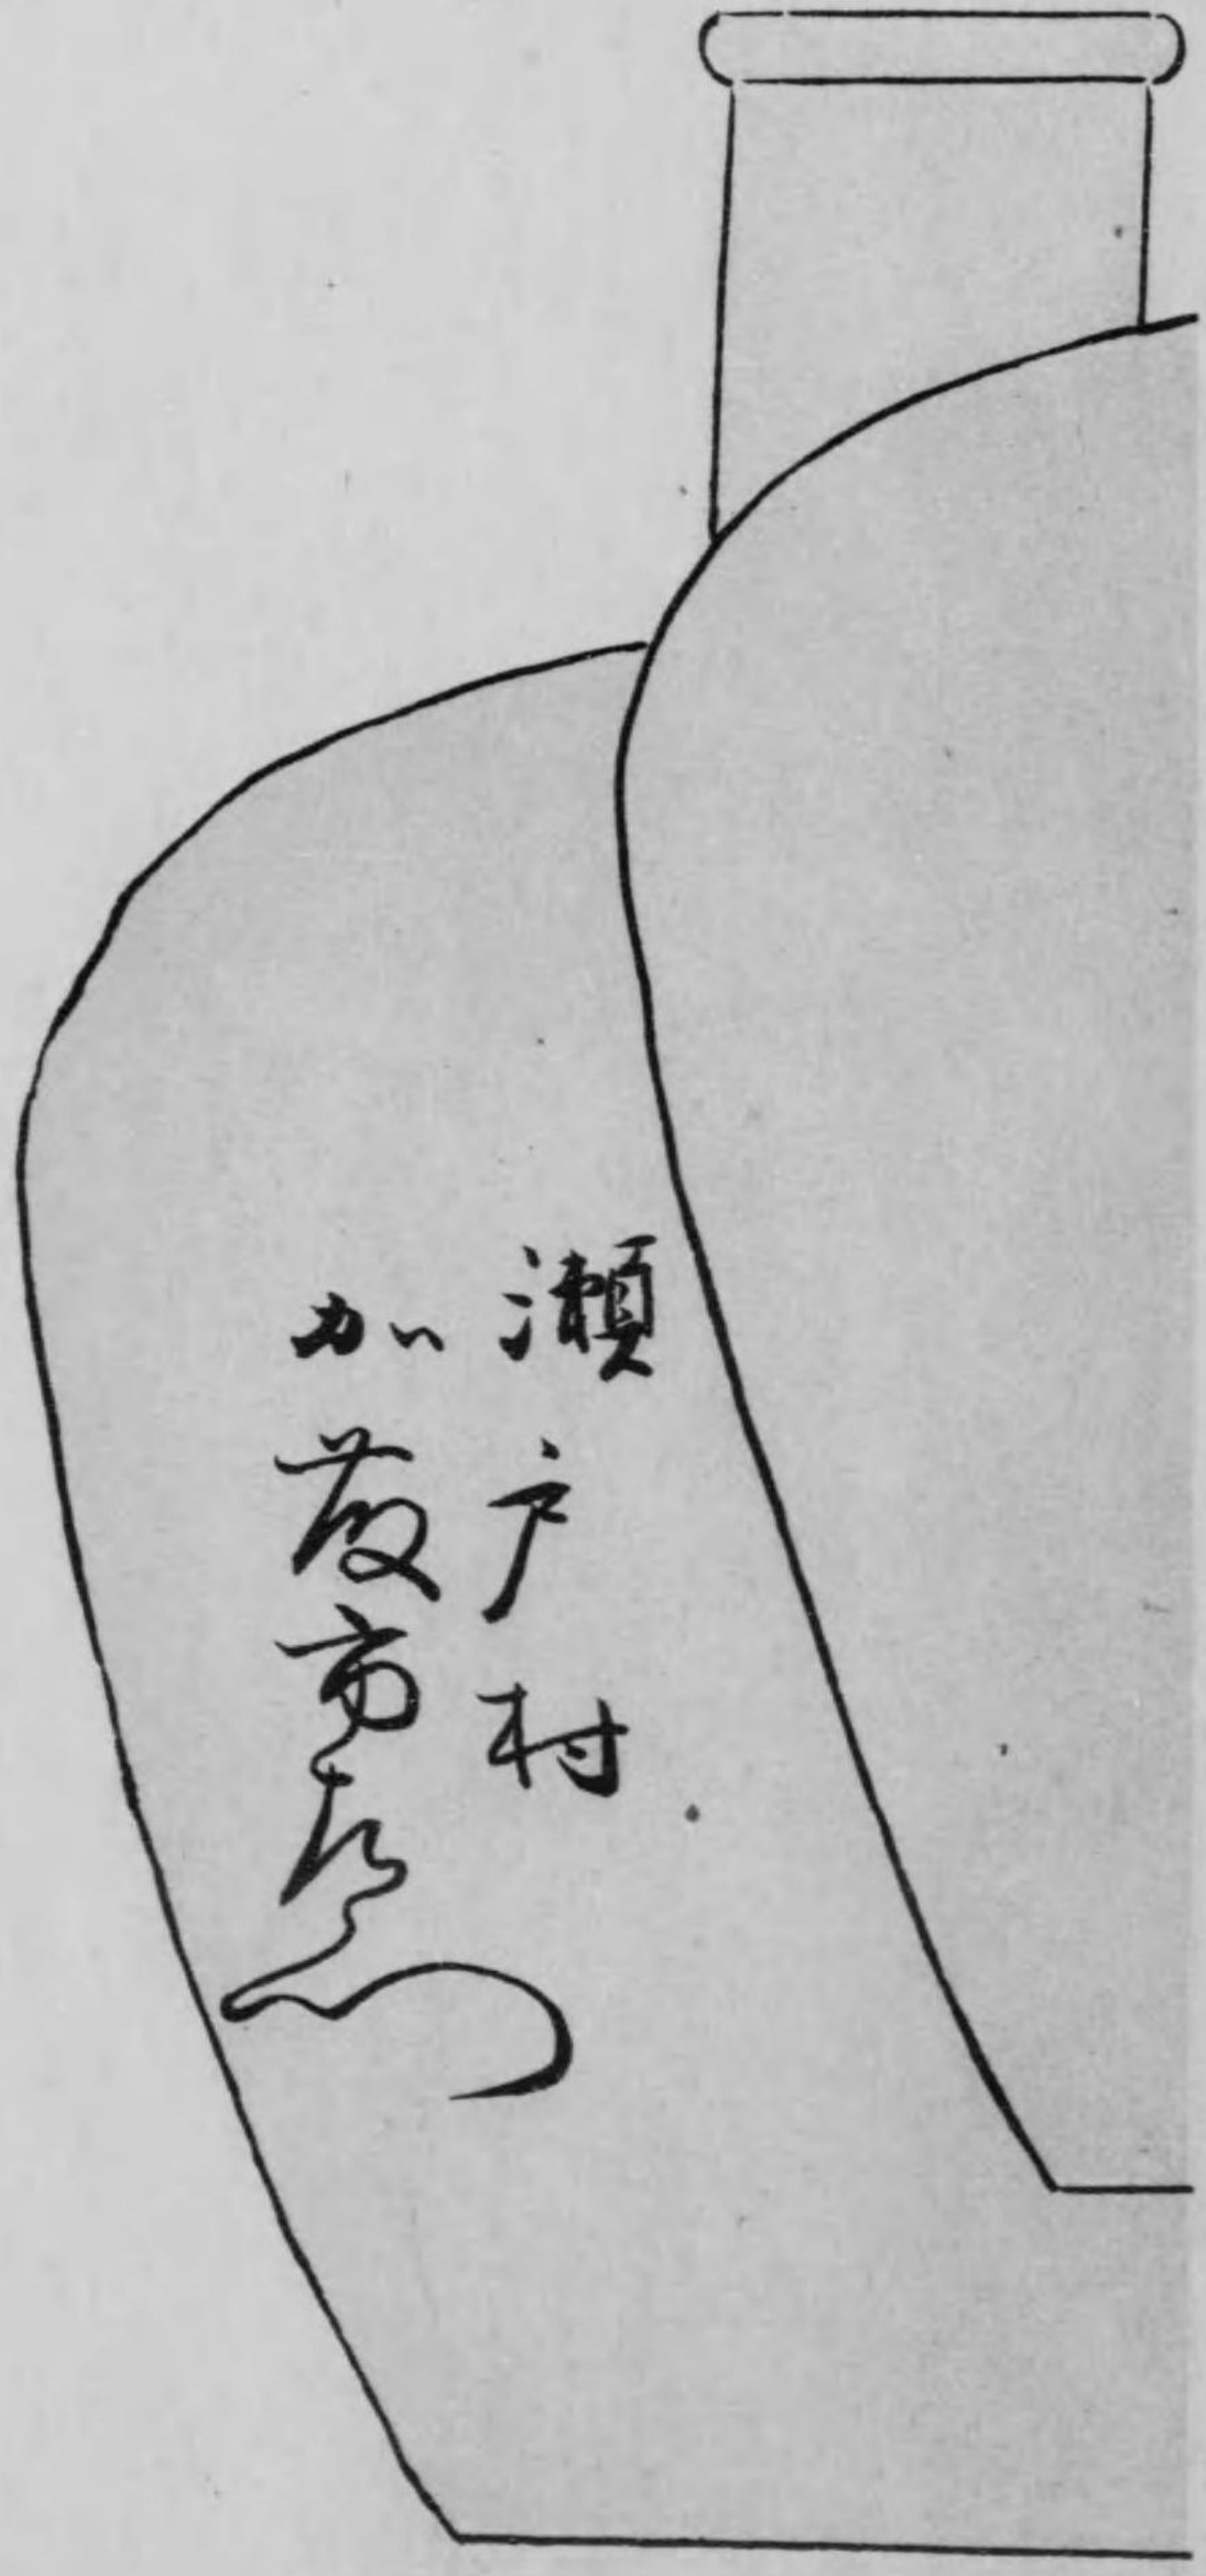 瀬戸村
加藤市左衛門